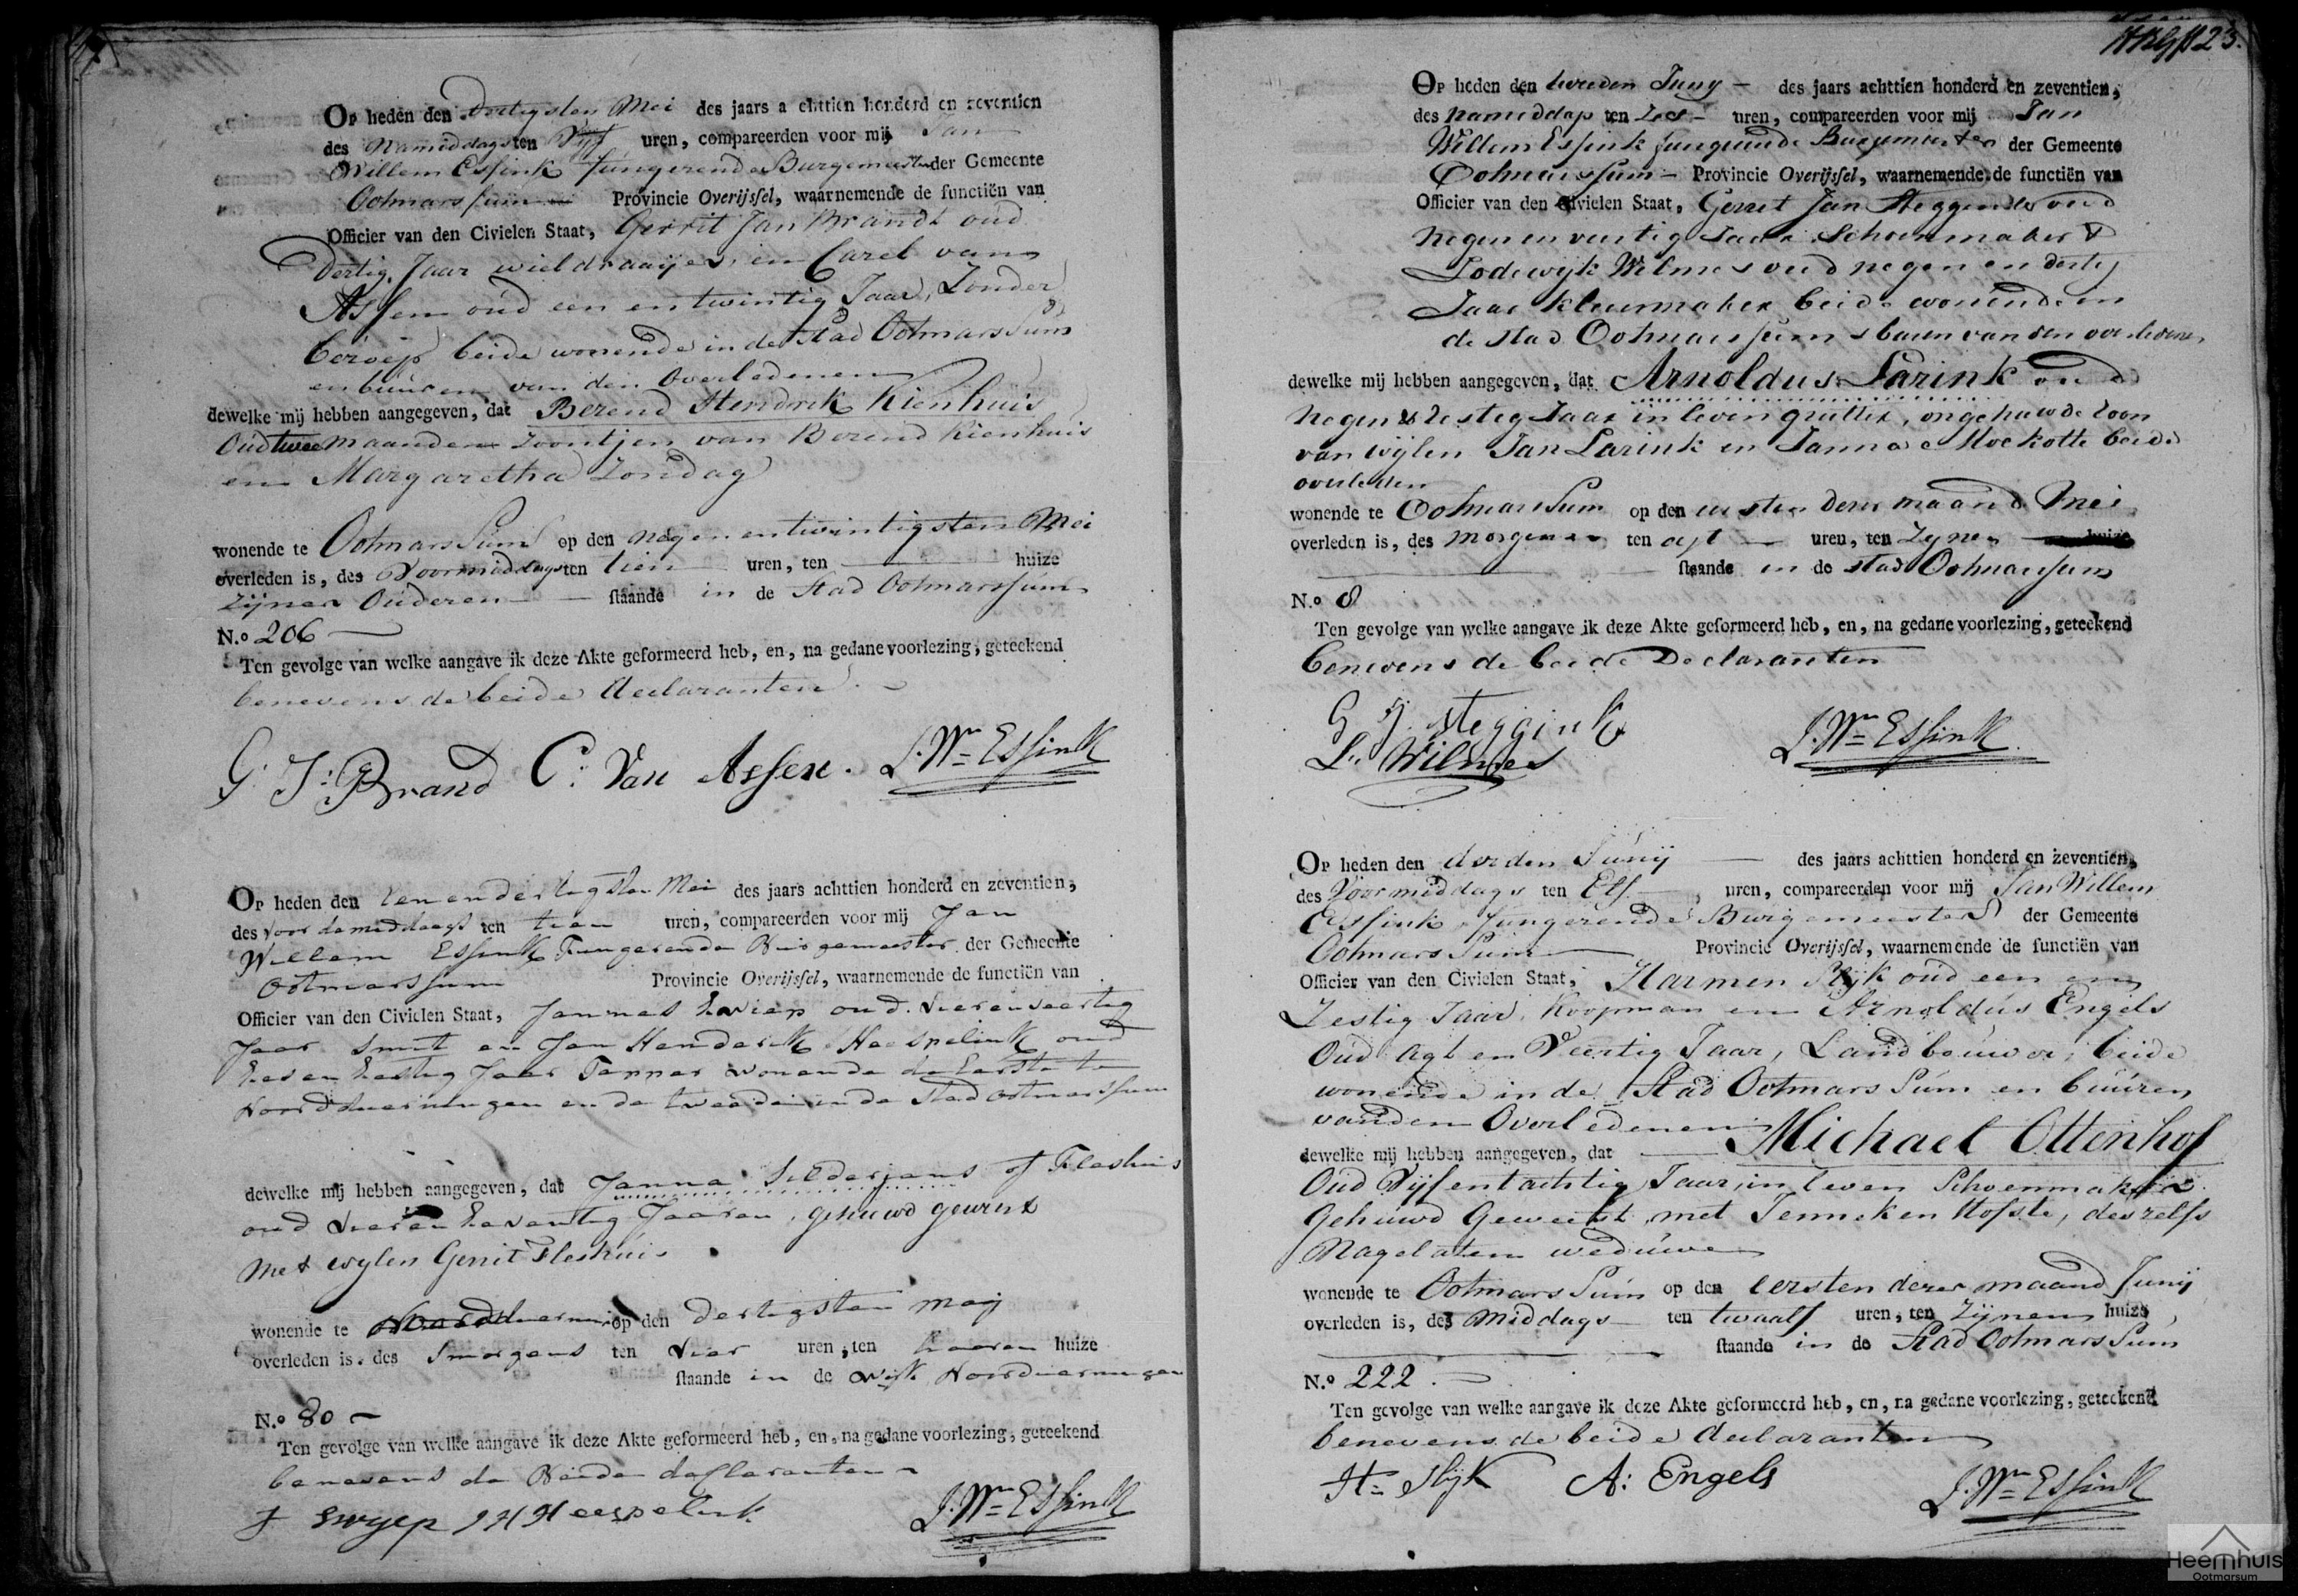 Op heden den dertigsten Mei des jaars achttien honderd en zeventien
des Namiddags ten Vijf uren, compareerden voor mij Jan
Willem Essink fungerende Burgemeester der Gemeente
Ootmarssum Provincie Overijssel, waarnemende de functiën van
Officier van den Civielen Staat, Gerrit Jan Brandt oud
Dertig Jaar wieldraaijer, en Carel van
Assen oud een en twintig Jaar, Zonder
beroep beide wonende in de Stad Ootmarssum
en buuren van den Overledenen
dewelke mij hebben aangegeven, dat Berend Hendrik Kienhuis
Oud twee maanden zoontjen van Berend Kienhuis
en Margaretha Zondag
wonende te Ootmarssum op den negen en twintigsten Mei
overleden is, des Voormiddags ten tien uren, ten huize
zijner Ouderen staande in de Stad Ootmarssum
N.o 206
Ten gevolge van welke aangave ik deze Akte geformeerd heb, en, na gedane voorlezing, geteekend
benevens de beide declaranten.
G: J: Brand C: Van Assen. J. Wm Essink
Op heden den eenendertigsten Mei des jaars achttien honderd en zeventien,
des voor de middaags ten tien uren, compareerden voor mij Jan
Willem Essink Fungerende Burgemeester der Gemeente
Ootmarssum Provincie Overijssel, waarnemende de functiën van
Officier van den Civielen Staat, Jannes oud vierenveertig
Jaar Smit en Jan Henderik Heespelink oud
Jaar Tapper wonende de Eerste te
Noorddeurningen en de tweede in de Stad Ootmarssum
dewelke mij hebben aangegeven, dat Janna of Fleshuis
oud Jaaren, gehuwd geweest
met wylen Gerrit Fleshuis
wonende te Noorddeurning op den dertigsten Meij
overleden is, des Smorgens ten vier uren, ten haaren huize
staande in de Wijk Noorddeurningen
N.o 80
Ten gevolge van welke aangave ik deze Akte geformeerd heb, en, na gedane voorlezing, geteekend
benevens de Beide declaranten
J Swyep J H Heespelink J. Wm Essink
23.
Op heden den tweeden Juny des jaars achttien honderd en zeventien,
des namiddags ten zes uren, compareerden voor mij Jan
Willem Essink fungerende Burgemeester der Gemeente
Ootmarssum Provincie Overijssel, waarnemende de functiën van
Officier van den Civielen Staat, Gerret Jan Steggink oud
negen en veertig Jaar Schoenmaker &
Lodewyk Wilmes oud negen en dertig
Jaar kleermaker beide wonende in
de stad Ootmarssum buren van den overledenen
dewelke mij hebben aangegeven, dat Arnoldus Larink oud
negen & zestig Jaar in leven grutter, ongehuwde zoon
van wijlen Jan Larink en Janna Moekotte beide
overleden
wonende te Ootmarssum op den eersten dezer maand Mei
overleden is, des morgens ten agt uren, ten zynen huize
staande in de stad Ootmarssum
N.o 8
Ten gevolge van welke aangave ik deze Akte geformeerd heb, en, na gedane voorlezing, geteekend
benevens de beide Declaranten
G J Steggink
L. Wilmes J. Wm Essink
Op heden den derden Junij des jaars achttien honderd en zeventien,
des Voormiddags ten Elf uren, compareerden voor mij Jan Willem
Essink, fungerende Burgemeester der Gemeente
Ootmarssum Provincie Overijssel, waarnemende de functiën van
Officier van den Civielen Staat, Harmen Slijk oud een en
Zestig Jaar, Koopman en Arnoldus Engels
Oud agt en Veertig Jaar, Landbouwer, beide
wonende in de Stad Ootmarssum en buuren
van den Overledenen
dewelke mij hebben aangegeven, dat Michael Ottenhof
Oud Vijf en tachtig Jaar, in leven Schoenmaker
Gehuwd Geweest met Jenneken Hofste, deszelfs
Nagelaten weduwe
wonende te Ootmarssum op den eersten dezer maand Junij
overleden is, des Middags ten twaalf uren, ten zijnen huize,
staande in de Stad Ootmarssum
N.o 222.
Ten gevolge van welke aangave ik deze Akte geformeerd heb, en, na gedane voorlezing, geteekend
benevens de beide declaranten
H: Slijk A: Engels J. Wm Essink
Heemhuis
Ootmarsum